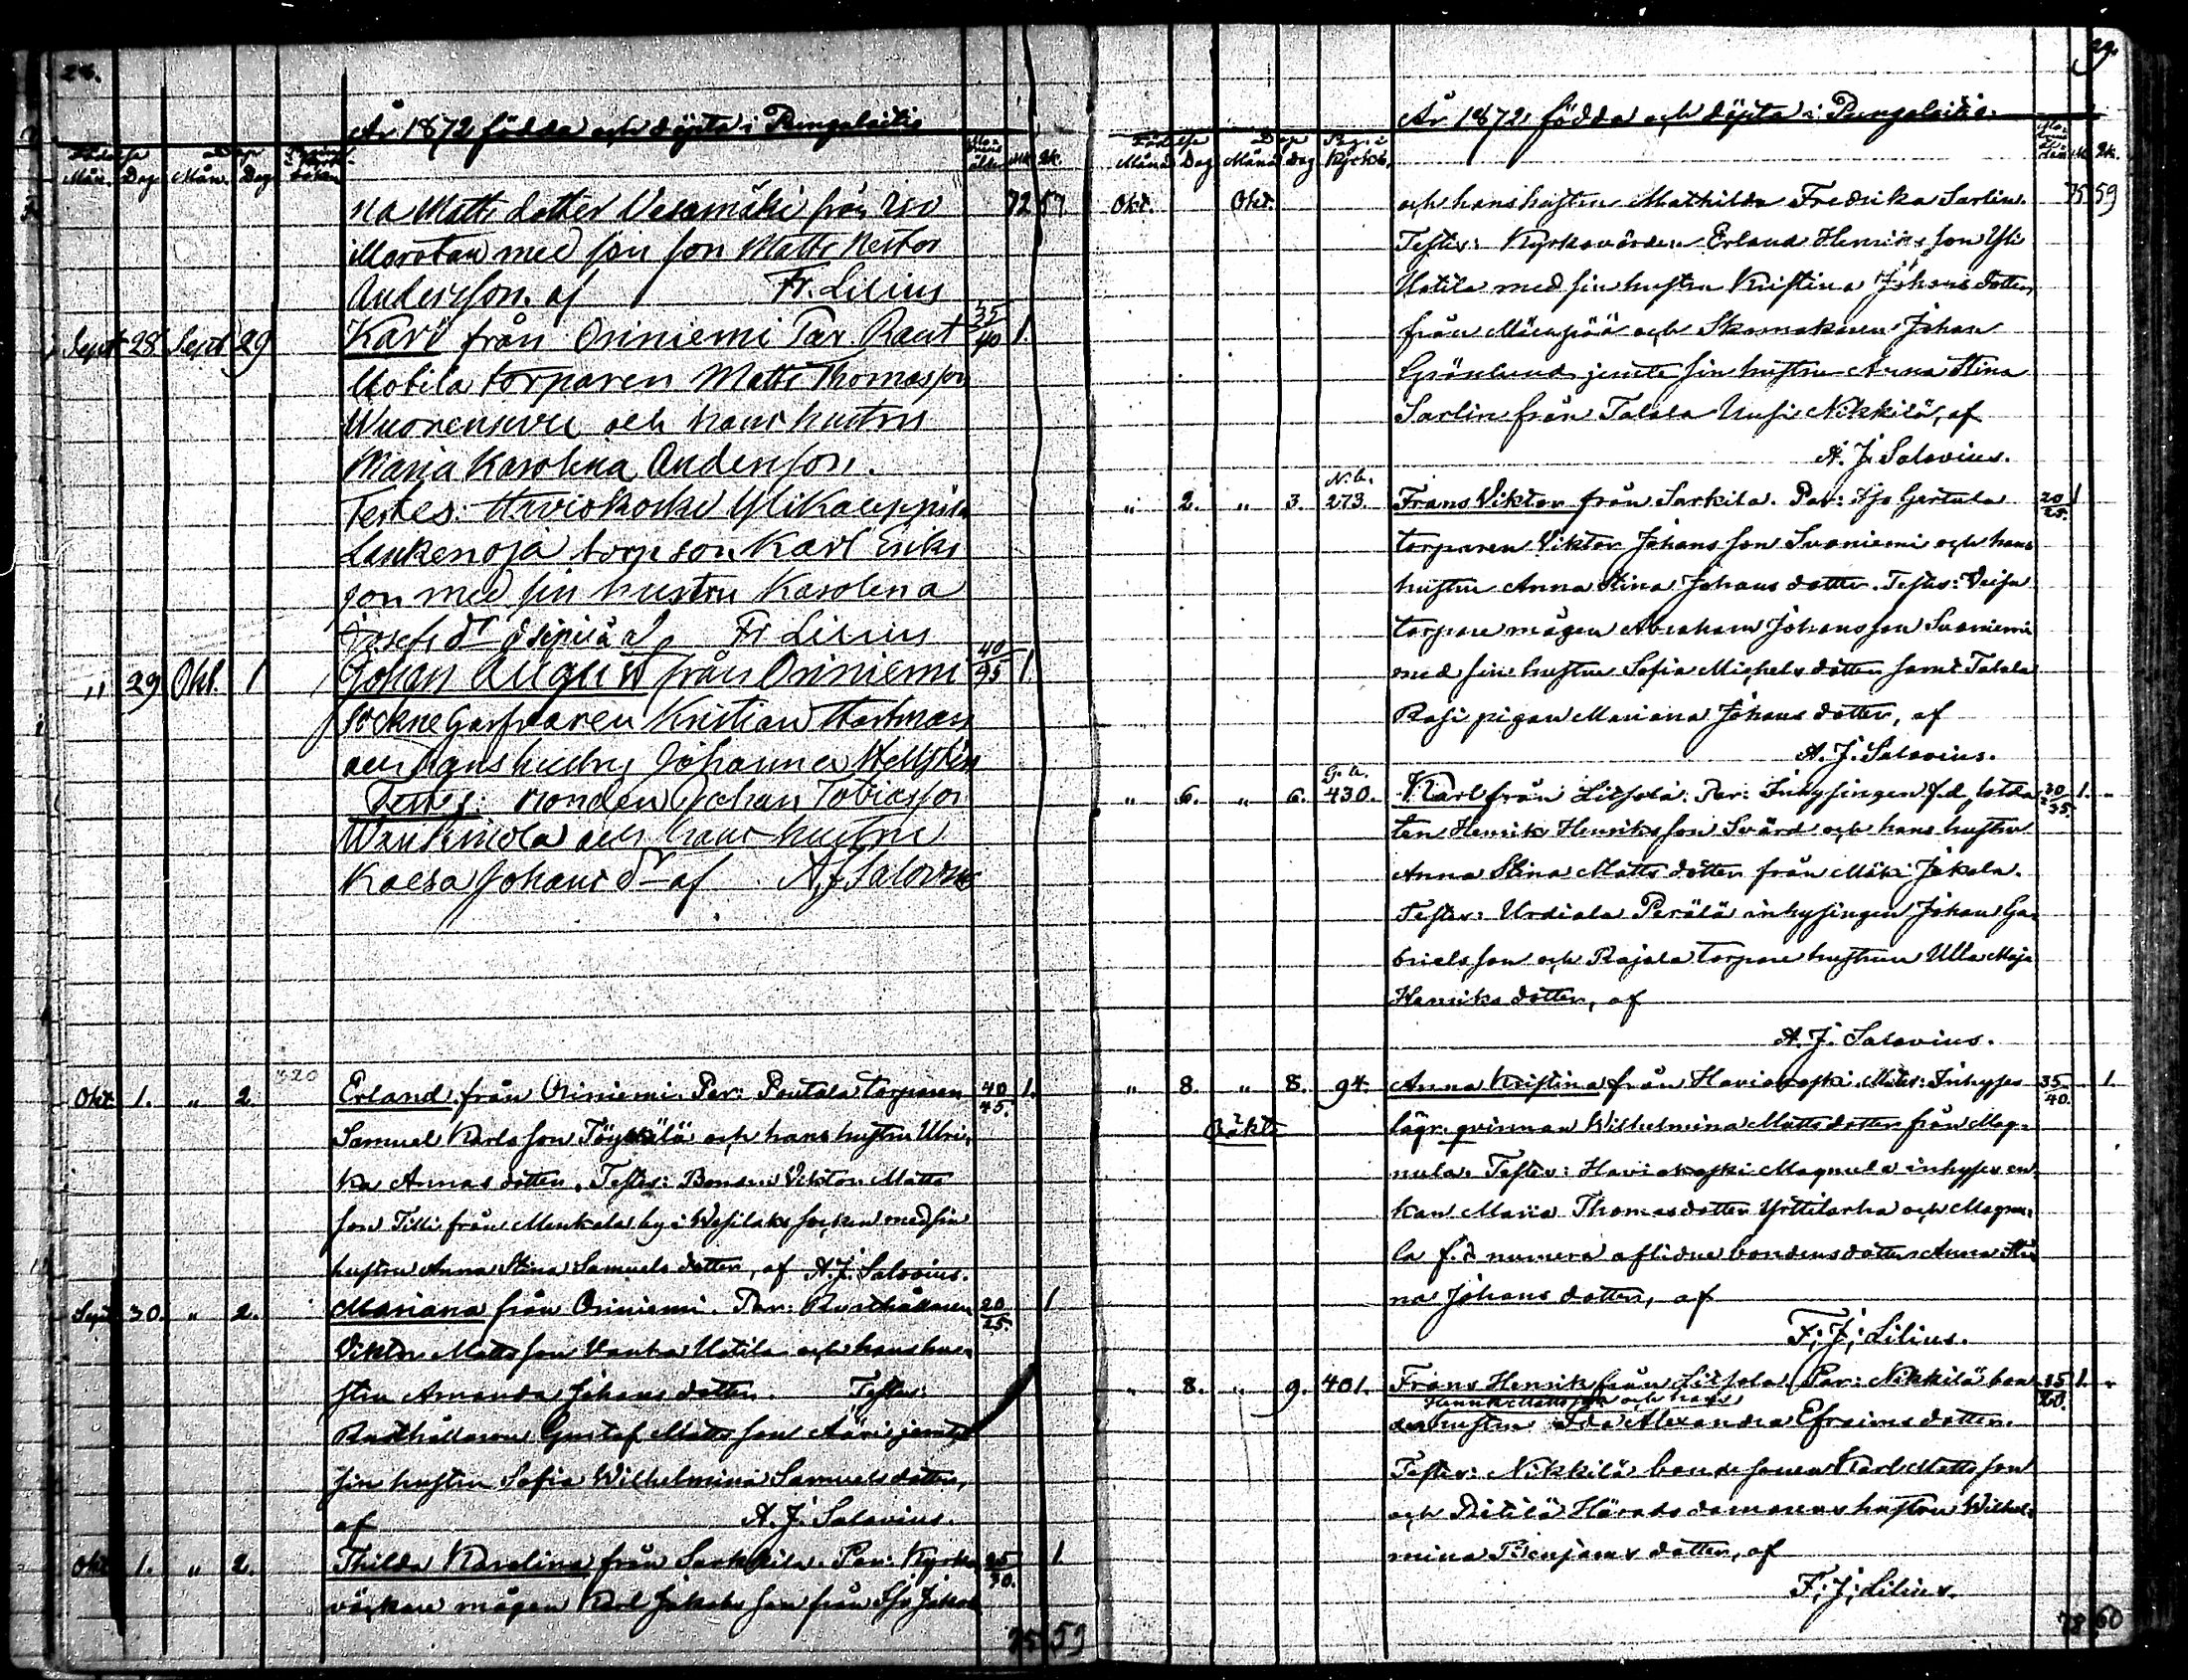 28.
År 1872 födda och döpta i Pungalaitio
Födelse Dop Pagina i Kyrkoboken Modrens ålder Mk. Qk.
Mån. Dag Mån. Dag
na Matts dotter Vesamäki från 72 57
med sin son Matts Nestor
Andersson. af Fr. Lilius
Sept 28 Sept 29 Karl från Oriniemi Par Raut 35/40 1.
Uotila torparen Matts Thomasson
Wuorensivu och hans hustru
Maria Karolina Andersson.
Testes: Haviokoski Ylikauppila
Laukenoja torp son Karl Eriks
son med sin hustru Karolina
Josefs dr Fr Lilius
" 29 Okt. 1 Johan August från Oriniemi 40/45 1.
Sockne Garfvaren Kristian Hartman
och hans hustru Johanna Hellsten
Testes: Bonden Johan Tobiasson
och hans hustru
Kaesa Johans dr af A. J. Salovius
320
Okt 1. " 2. Erland från Oriniemi. Par: Pentala torparen 40/45. 1.
Samuel Karlsson Töyrälä och hans hustru Ulri,
ka Annas dotter. Testes: Bonden Viktor Matts
son Tilli från Menkala by i Wesilaks socken med sin
hustru Anna Stina Samuels dotter, af A. J. Salovius.
Sept 30. " 2. Mariana från Oriniemi. Par: Rusthållaren 20/25. 1
Viktor Mattsson Vanha Uotila och hans hu
stru Amanda Johans dotter. Testes:
Rusthållaren Gustaf Matts son Ääri jemte
sin hustru Sofia Wilhelmina Samuels dotter,
af A. J. Salovius.
Okt 1. " 2. Thilda Karolina från Sarkkila. Par: Kyrko 25/30. 1
väktare mågen Karl Jakobs son från
75 59
29.
År 1872 födda och döpta i Pungalaitio.
Födelse Dop Pag. i Kyrkob.
Månad Dag Månad dag
Okt. Okt. och hans hustru Mathilda Fredrika Sarlin. 75 59
Testes: Kyrkovärden Erland Henriksson Yli
Uotila med sin hustru Kristina Johans dotter
från Mäenpää och Skomakaren Johan
Grönlund jemte sin hustru Anna Stina
Sarlin från Talala Uusi Nikkilä, af
A. J. Salovius.
N.b.
" 2. " 3. 273. Frans Viktor från Sarkila. Par: Iso Gertula 20/25. 1
torparen Viktor Johans son Suoniemi och hans
hustru Anna Stina Johans dotter. Testes:
torpare mågen Abraham Johans son Suoniemi
med sin hustru Sofia Michels dotter samt Talala
Rasi pigan Mariana Johans dotter, af
A. J. Salovius.
G. b.
" 6. " 6. 430. Karl från Liitsola. Par: Inhysingen f.d. solda 30/35. 1. "
ten Henrik Henriks son Svärd och hans hustru
Anna Stina Matts dotter från Mäki Jakala.
Testes: Urdiala Perälä inhysingen Johan Ga
briels son och Rajala torpare hustrun Ulla Maja
Henriks dotter, af
A. J. Salovius.
" 8. " 8. 94. Anna Kristina från Haviokoski. Mater: Inhyses 35/40. 1.
Oäkta lägr. qvinnan Wilhelmina Matts dotter från Mag
nula. Testes: Haviokoski Magnula inhyses en
kan Maria Thomas dotter Yrttilarha och Magnu
la f. d numera aflidne bondens dotter Anna Sti
na Johans dotter, af
F; J; Lilius.
" 8. " 9. 401. Frans Henrik från Liitsola. Par: Nikkilä bon 15/20. 1. "
Henrik Mattsson och hans
den hustru Ida Alexandra Efraims dotter.
Testes: Nikkilä bonde sonen Karl Matts son
och Ritilä Härads domarens hustru Wilhel
mina Benjams dotter, af
F; J; Lilius.
78 60